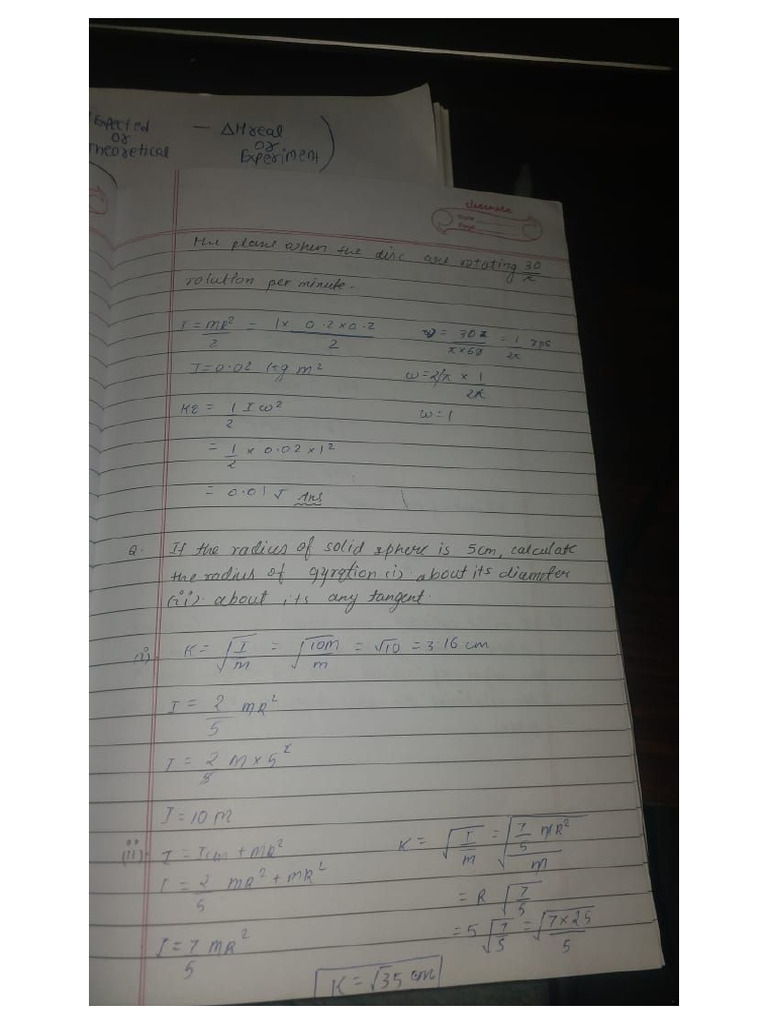 Expected — ΔH real
or or
Theoretical Experiment)
classmate
Date
Page
the plane when the disc are rotating 30/π
rolution per minute.
I = mR²/2 = 1 × 0.2 × 0.2/2
ν = 30/π×60 = 1/2π rps
I = 0.02 kg m²
ω = 2π × 1/2π
KE = 1/2 I ω²
ω = 1
= 1/2 × 0.02 × 1²
= 0.01 J Ans
Q. If the radius of solid sphere is 5cm, calculate
the radius of gyration (i) about its diameter
(ii) about its any tangent.
(i) K = √I/m = √10M/m = √10 = 3.16 cm
I = 2/5 MR²
I = 2/5 M × 5²
I = 10 M
(ii) I = Icm + MR²
I = 2/5 MR² + MR²
I = 7/5 MR²
K = √I/m = √7/5 MR²/m
= R √7/5
= 5 √7/5 = √7×25/5
K = √35 cm